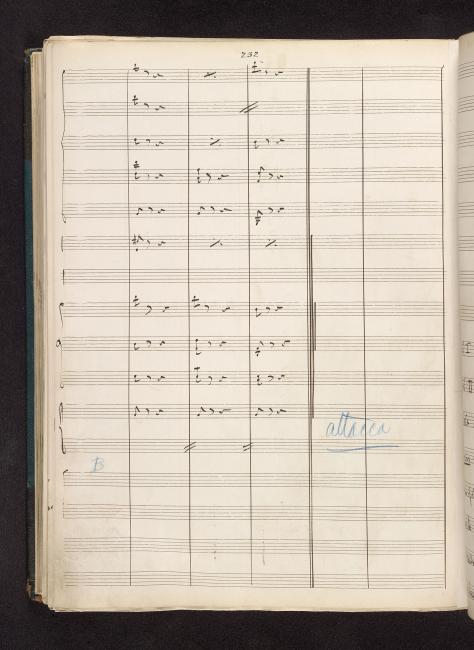 232
attacca
B